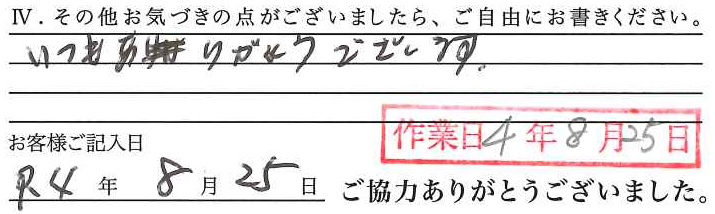 Ⅳ．その他お気づきの点がございましたら、ご自由にお書きください。
いつもありがとうございます。
作業日4年8月25日
お客様ご記入日
R4年8月25日 ご協力ありがとうございました。